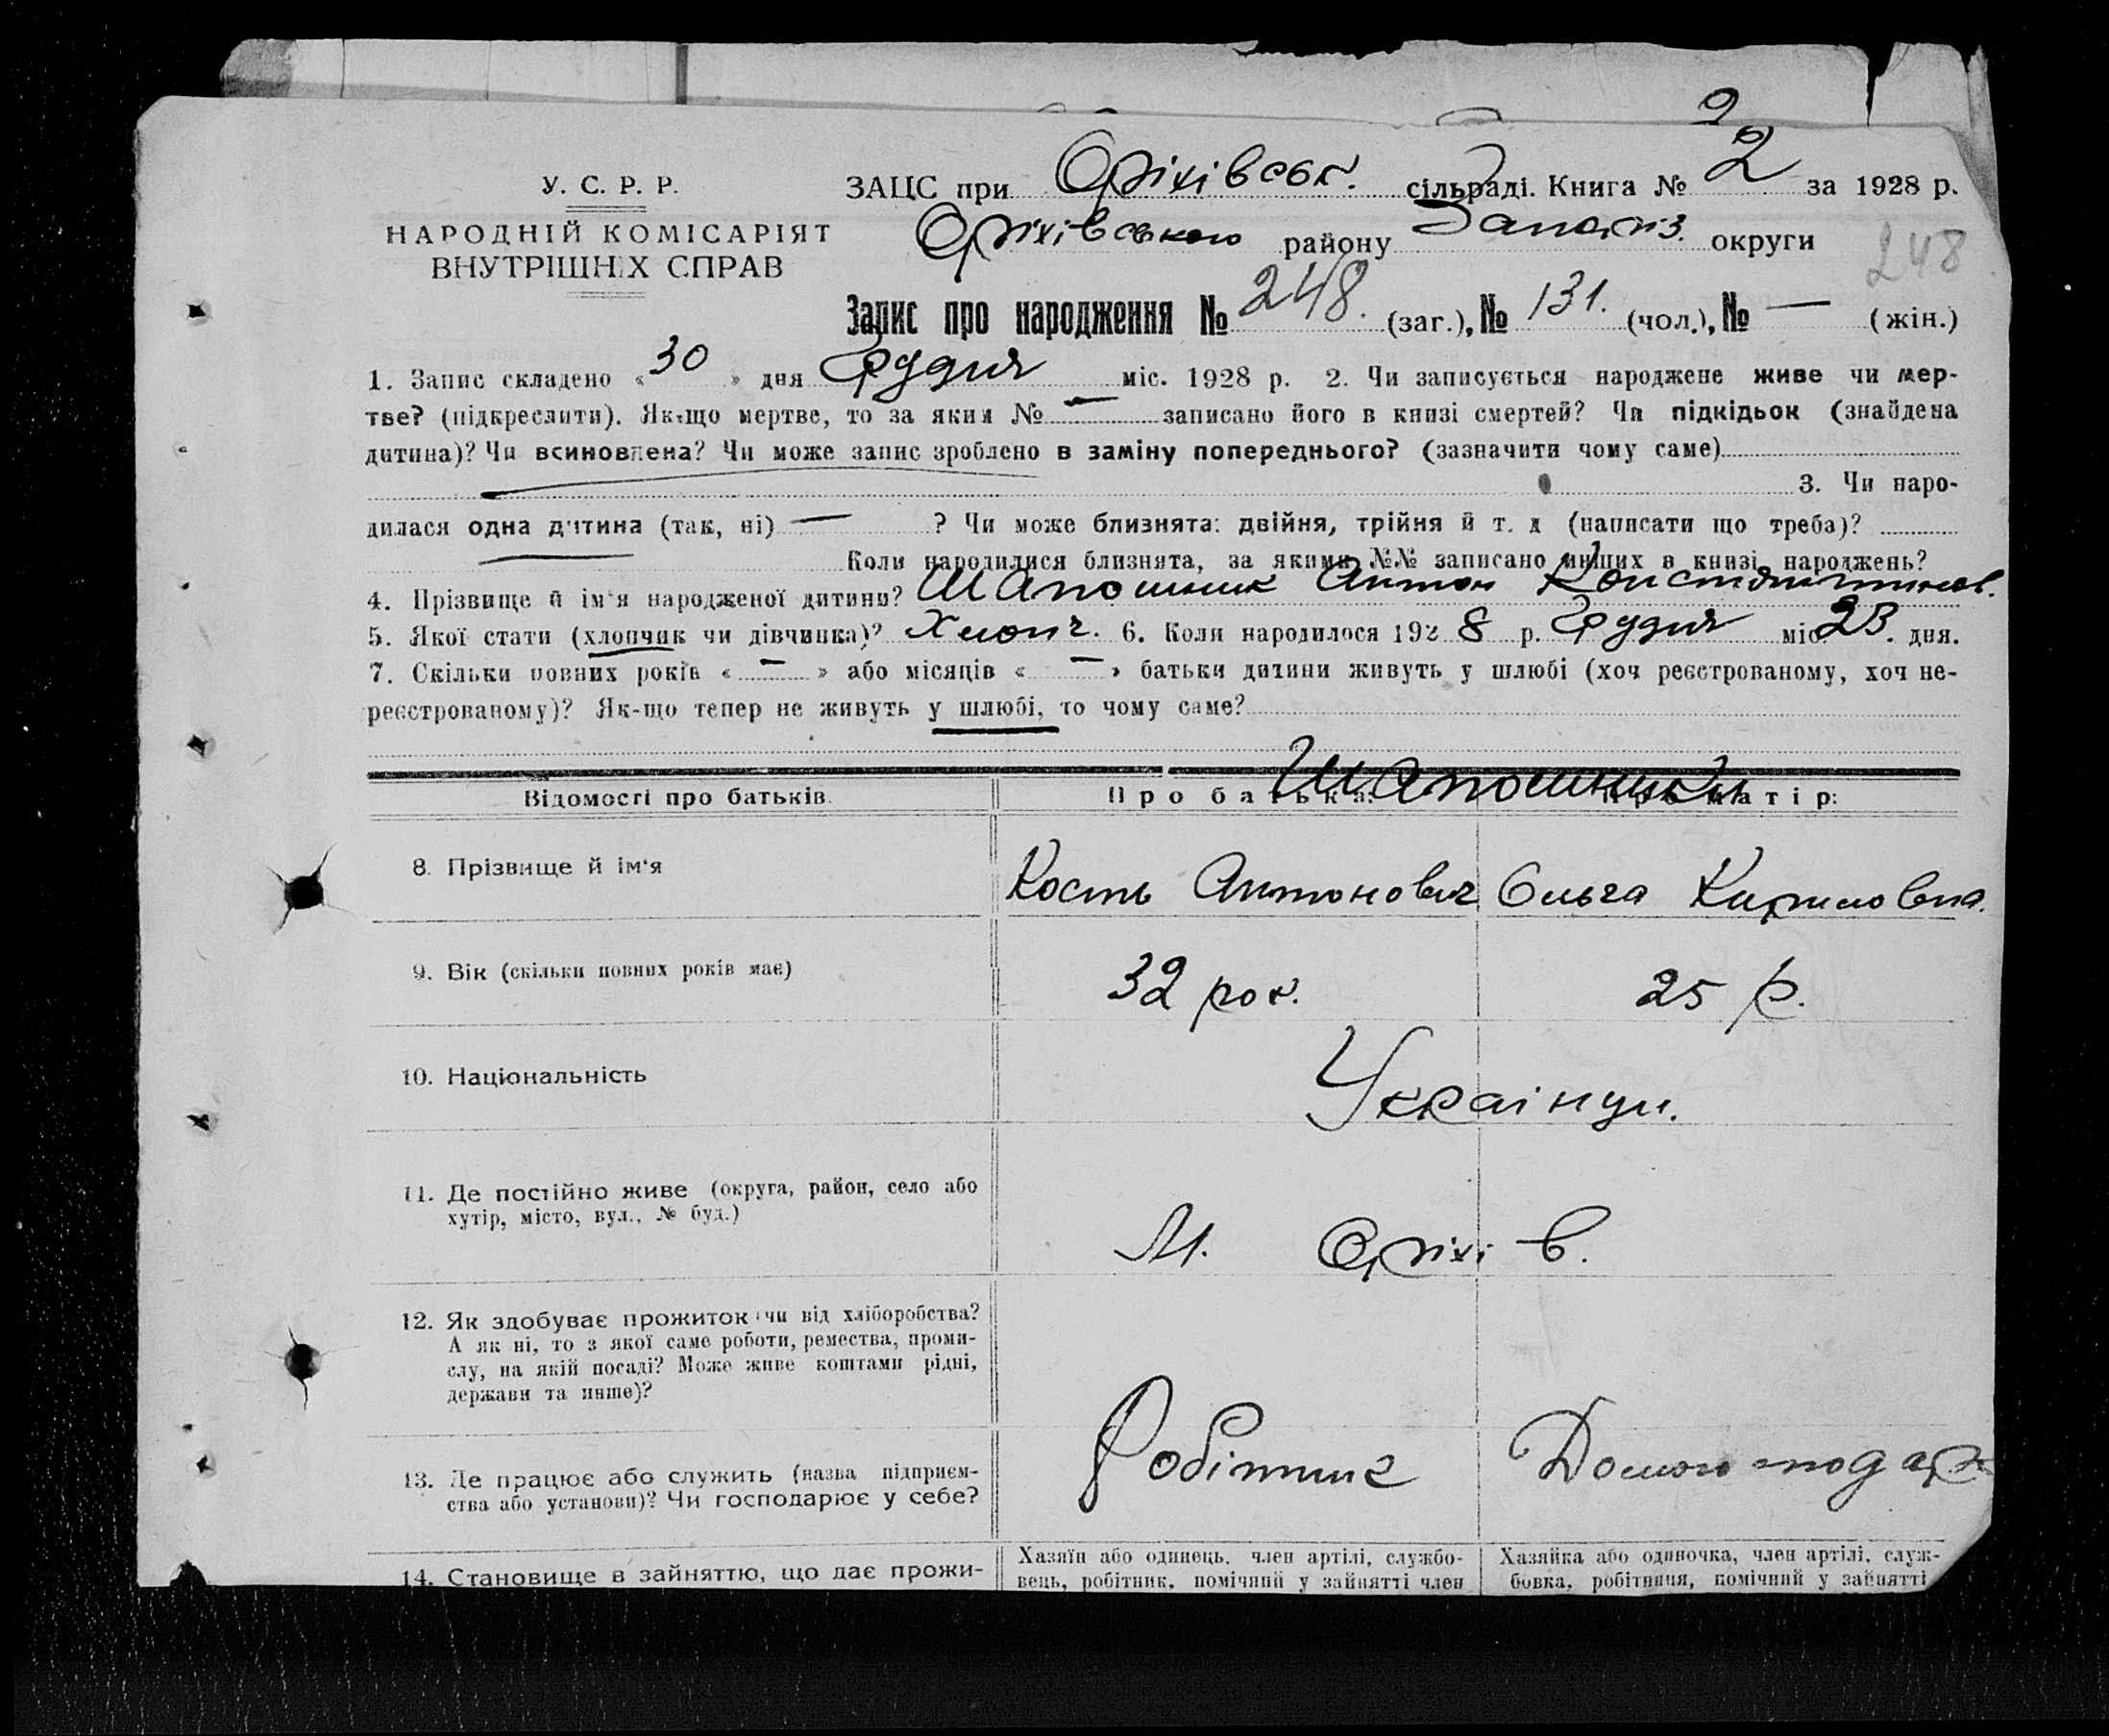 У. С. Р. Р.
НАРОДНІЙ КОМІСАРІЯТ
ВНУТРІШНІХ СПРАВ
ЗАЦС при Оріхівськ. сільраді. Книга № 2 за 1928 р.
Оріхівського району Запоріз. округи
248
Запис про народження № 248. (заг.), № 131. (чол.), № — (жін.)
1. Запис складено « 30 » дня Грудня міс. 1928 р. 2. Чи записується народжене живе чи мер-
тве? (підкреслити). Як-що мертве, то за яким № — записано його в книзі смертей? Чи підкідьок (знайдена
дитина)? Чи всиновлена? Чи може запис зроблено в заміну попереднього? (зазначити чому саме)
3. Чи наро-
дилася одна дитина (так, ні) — ? Чи може близнята: двійня, трійня й т. д (написати що треба)?
Коли народилися близнята, за якими №№ записано инших в книзі народжень?
4. Прізвище й ім'я народженої дитини? Шапошник Антон Константинов.
5. Якої стати (хлопчик чи дівчинка)? Хлопч. 6. Коли народилося 192 8 р. Грудня міс. 23. дня.
7. Скільки повних років « — » або місяців « — » батьки дитини живуть у шлюбі (хоч реєстрованому, хоч не-
реєстрованому)? Як-що тепер не живуть у шлюбі, то чому саме?
Шапошники
Відомості про батьків. Про батька: Про матір:
8. Прізвище й ім'я Кость Антонович Ольга Кириловна.
9. Вік (скільки повних років має) 32 рок. 25 р.
10. Національність Українци.
11. Де постійно живе (округа, район, село або
хутір, місто, вул., № буд.)
М. Оріхів.
12. Як здобуває прожиток (чи від хліборобства?
А як ні, то з якої саме роботи, ремества, проми-
слу, на якій посаді? Може живе коштами рідні,
держави та инше)?
Робітник
13. Де працює або служить (назва підприєм-
ства або установи)? Чи господарює у себе?
14. Становище в зайняттю, що дає прожи-
Хазяїн або одинець, член артілі, службо-
вець, робітник, помічний у зайнятті член
Хазяйка або одиночка, член артілі, служ-
бовка, робітниця, помічний у зайнятті